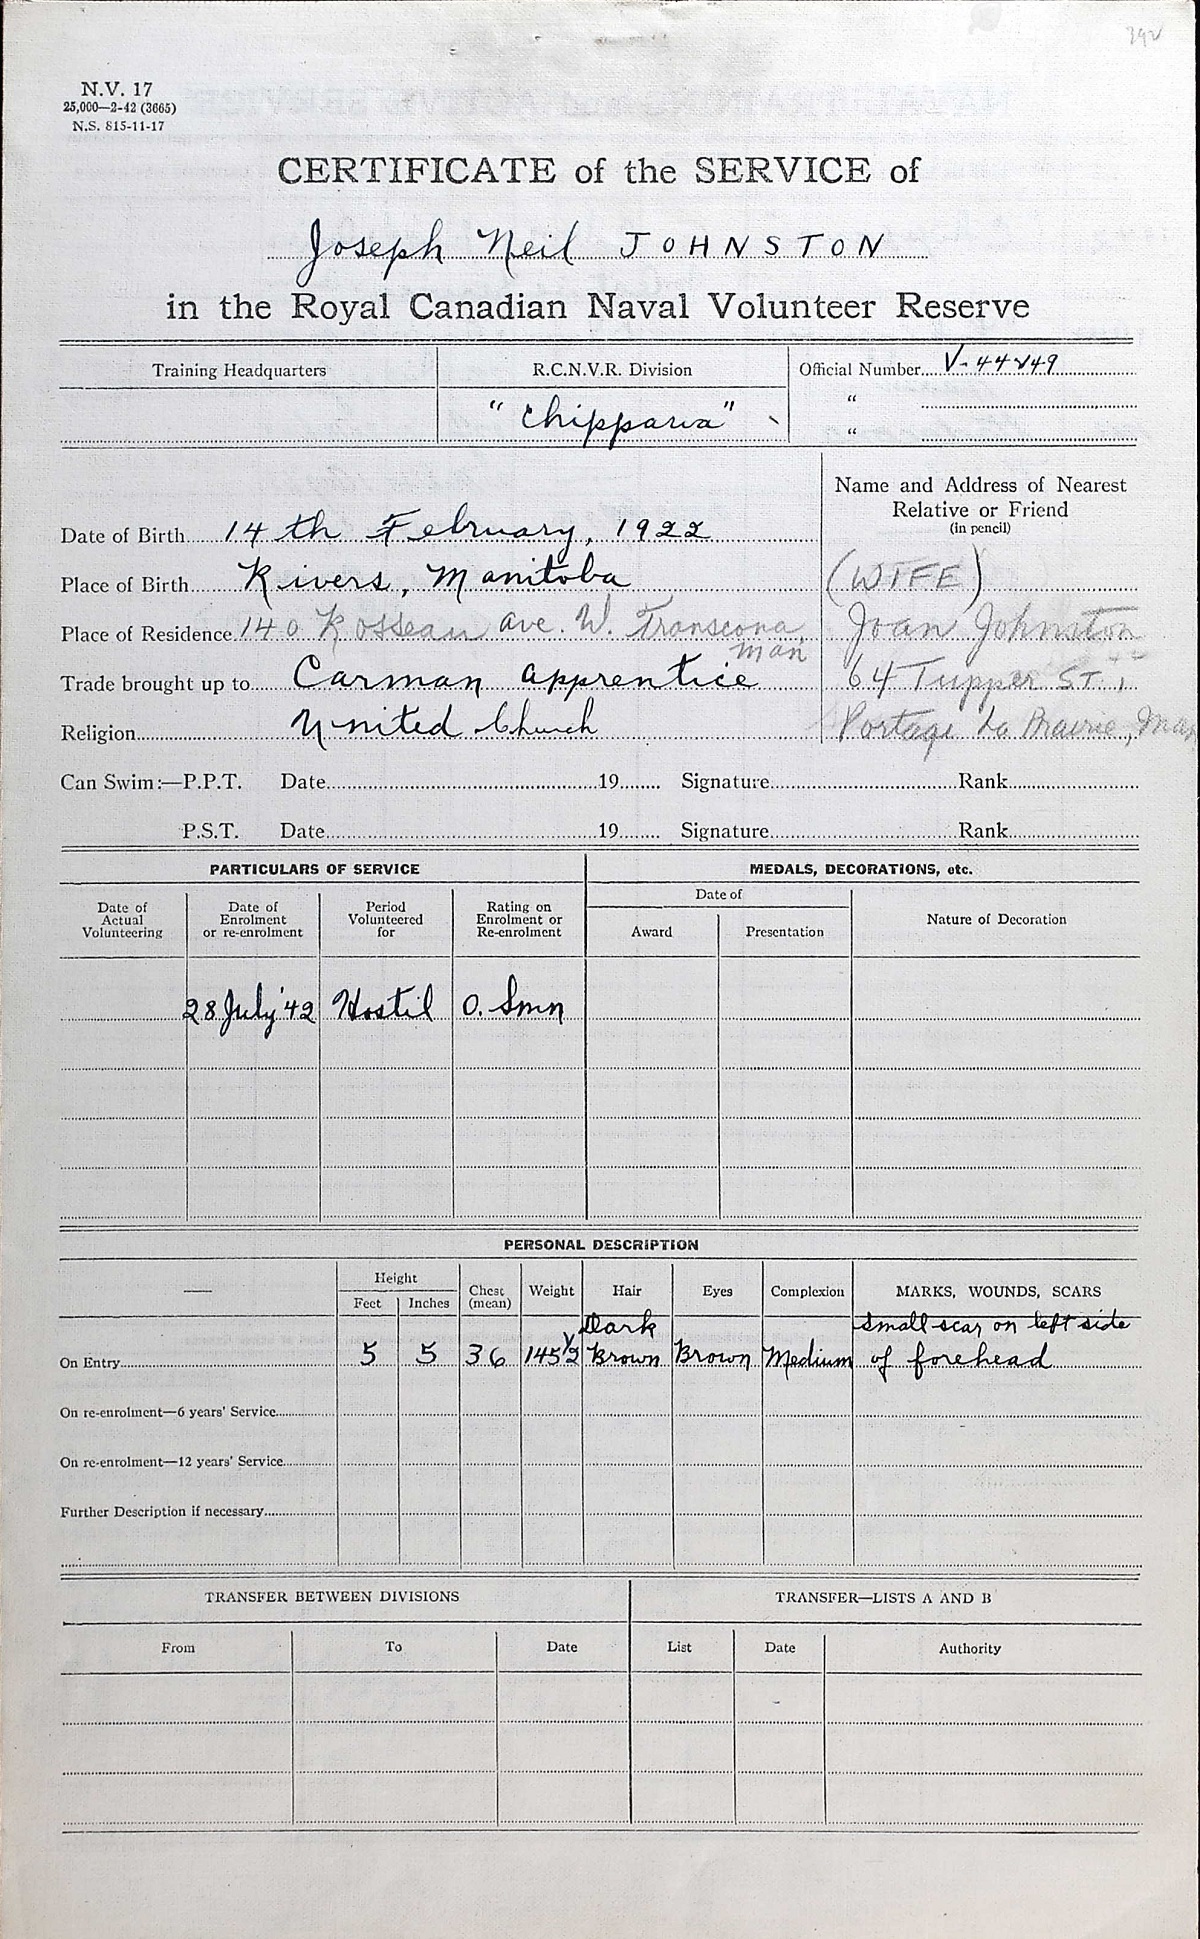 392
N.V. 17
25,000—2-42 (3665)
N.S. 815-11-17
CERTIFICATE of the SERVICE of
Joseph Neil JOHNSTON
in the Royal Canadian Naval Volunteer Reserve
Training Headquarters R.C.N.V.R. Division Official Number V-44249
"Chippawa" "
"
Name and Address of Nearest
Relative or Friend
(in pencil)
Date of Birth 14th February, 1922
Place of Birth Rivers, Manitoba (WIFE)
Place of Residence 140 Rosseau ave. W. Transcona, Joan Johnston
Man
Trade brought up to Carman apprentice 64 Tupper St.,
Religion United Church Portage La Prairie, Man
Can Swim:—P.P.T. Date 19 Signature Rank
P.S.T. Date 19 Signature Rank
PARTICULARS OF SERVICE MEDALS, DECORATIONS, etc.
Date of Actual Volunteering Date of Enrolment or re-enrolment Period Volunteered for Rating on Enrolment or Re-enrolment Date of Nature of Decoration
Award Presentation
28 July '42 Hostil O. Smn
PERSONAL DESCRIPTION
— Height Chest (mean) Weight Hair Eyes Complexion MARKS, WOUNDS, SCARS
Feet Inches
Dark Small scar on left side
On Entry 5 5 36 145 1/2 Brown Brown Medium of forehead
On re-enrolment—6 years' Service
On re-enrolment—12 years' Service
Further Description if necessary
TRANSFER BETWEEN DIVISIONS TRANSFER—LISTS A AND B
From To Date List Date Authority